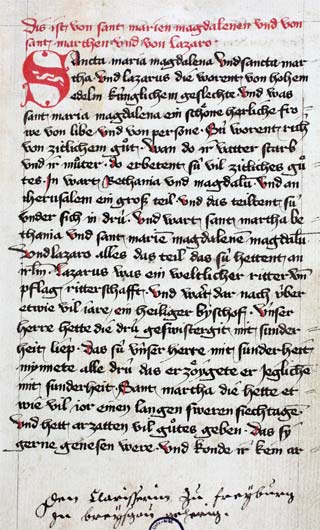 Dis ist von sant marien magdalenen und von
sant marthen und von Lazaro
Sancta maria magdalena und sancta mar
tha und lazarus die worent von hohem
edelm kúnglichem geslechte und was
sant maria magdalena ein schöne herliche fro
we von libe und von persone. Sú worent rich
von zitlichem gůt. Wan do ir vatter starb
und ir můter. do erbetent sú vil zitliches gů
tes. In wart Bethania und magdalú. und an
iherusalem ein groß teil. und das teiltent sú
under sich in drú. und wart sant martha be
thania und sant marie magdalene magdalú
Und lazaro alles das teil das sú hettent an
irlm. Lazarus was ein weltlicher ritter un
pflag ritterschafft. und wart dar nach úber
etwie vil iare, ein heiliger byschof. Unser
herre hette die drú geswistergit mit sunder
heit liep. Das sú unser herre mit sunderheit
mynnete alle drú das erzoygete er iegliche
mit sunderheit. Sant martha die hette et
wie vil jor einen langen sweren siechtage
Und hett arzatten vil gůtes geben. Das sy
gerne genesen were. und konde ir kem ar
Den Clarisserin zu freyburg
In breysgau gehörig.